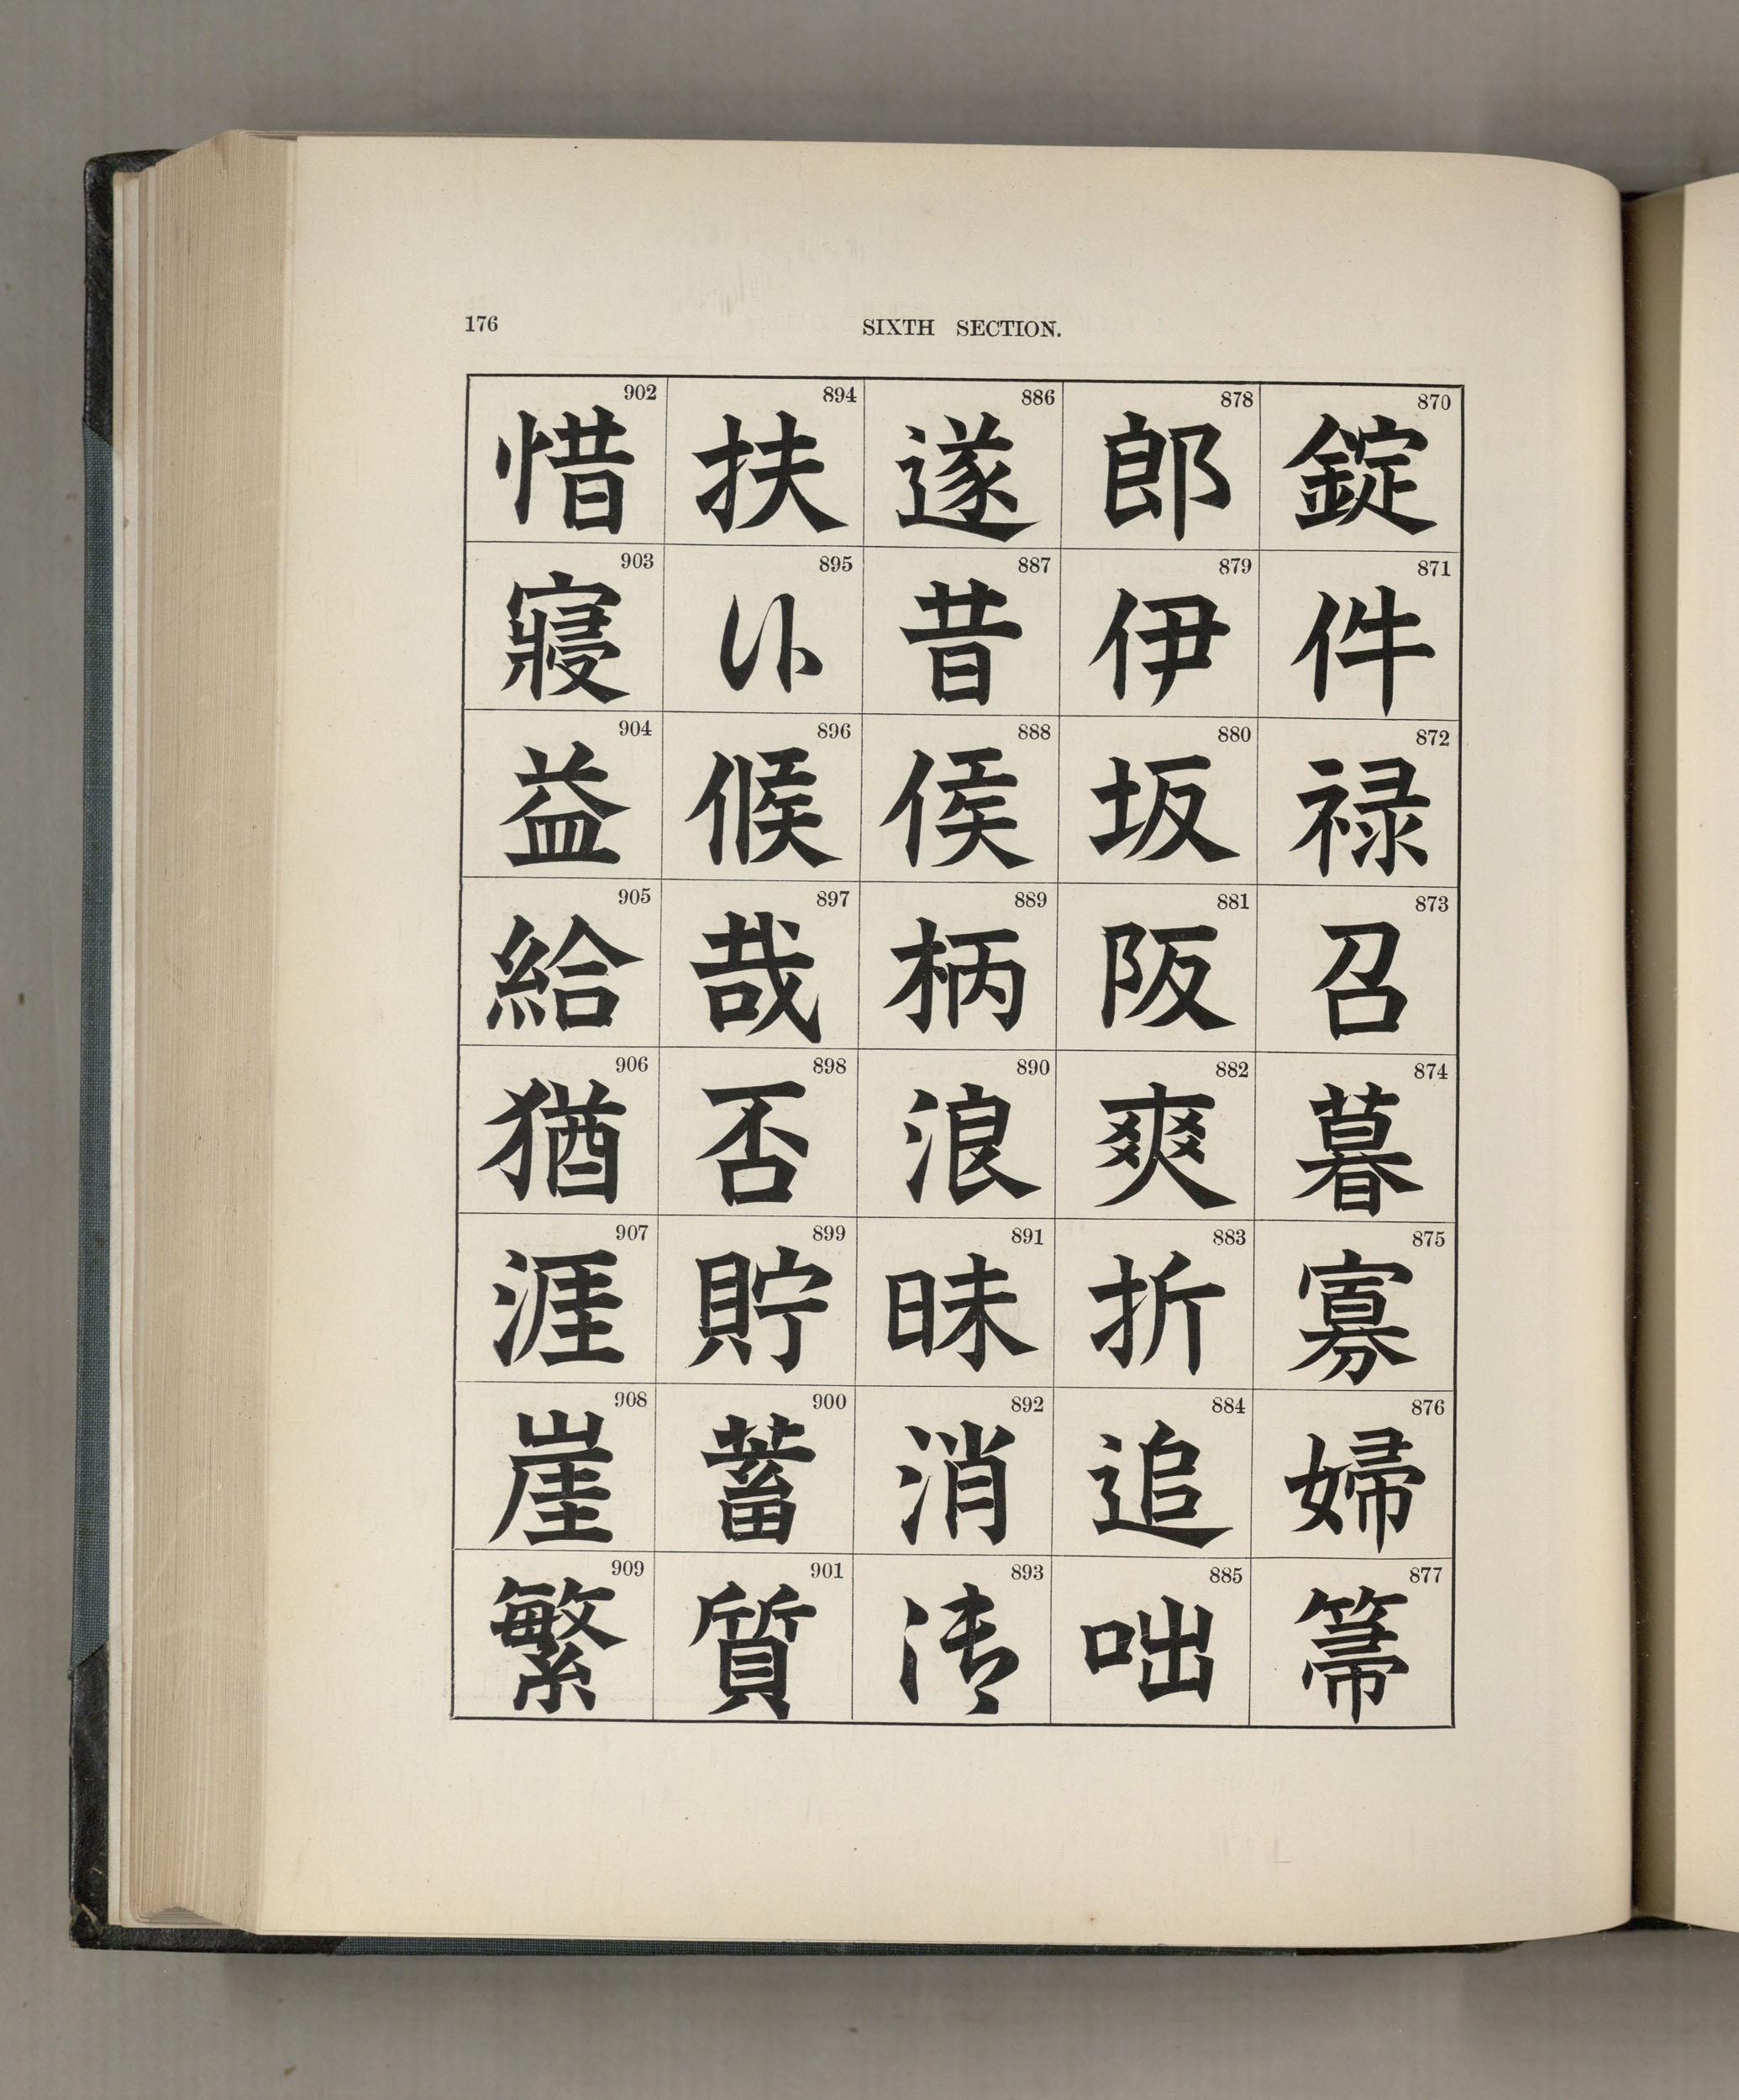 176
SIXTH SECTION.
870 錠
871 件
872 禄
873 召
874 暮
875 寡
876 婦
877 箒
878 郎
879 伊
880 坂
881 阪
882 爽
883 折
884 追
885 咄
886 遂
887 昔
888 侯
889 柄
890 浪
891 昧
892 消
893
894 扶
895
896 候
897 哉
898 否
899 貯
900 蓄
901 質
902 惜
903 寢
904 益
905 給
906 猶
907 涯
908 崖
909 繁